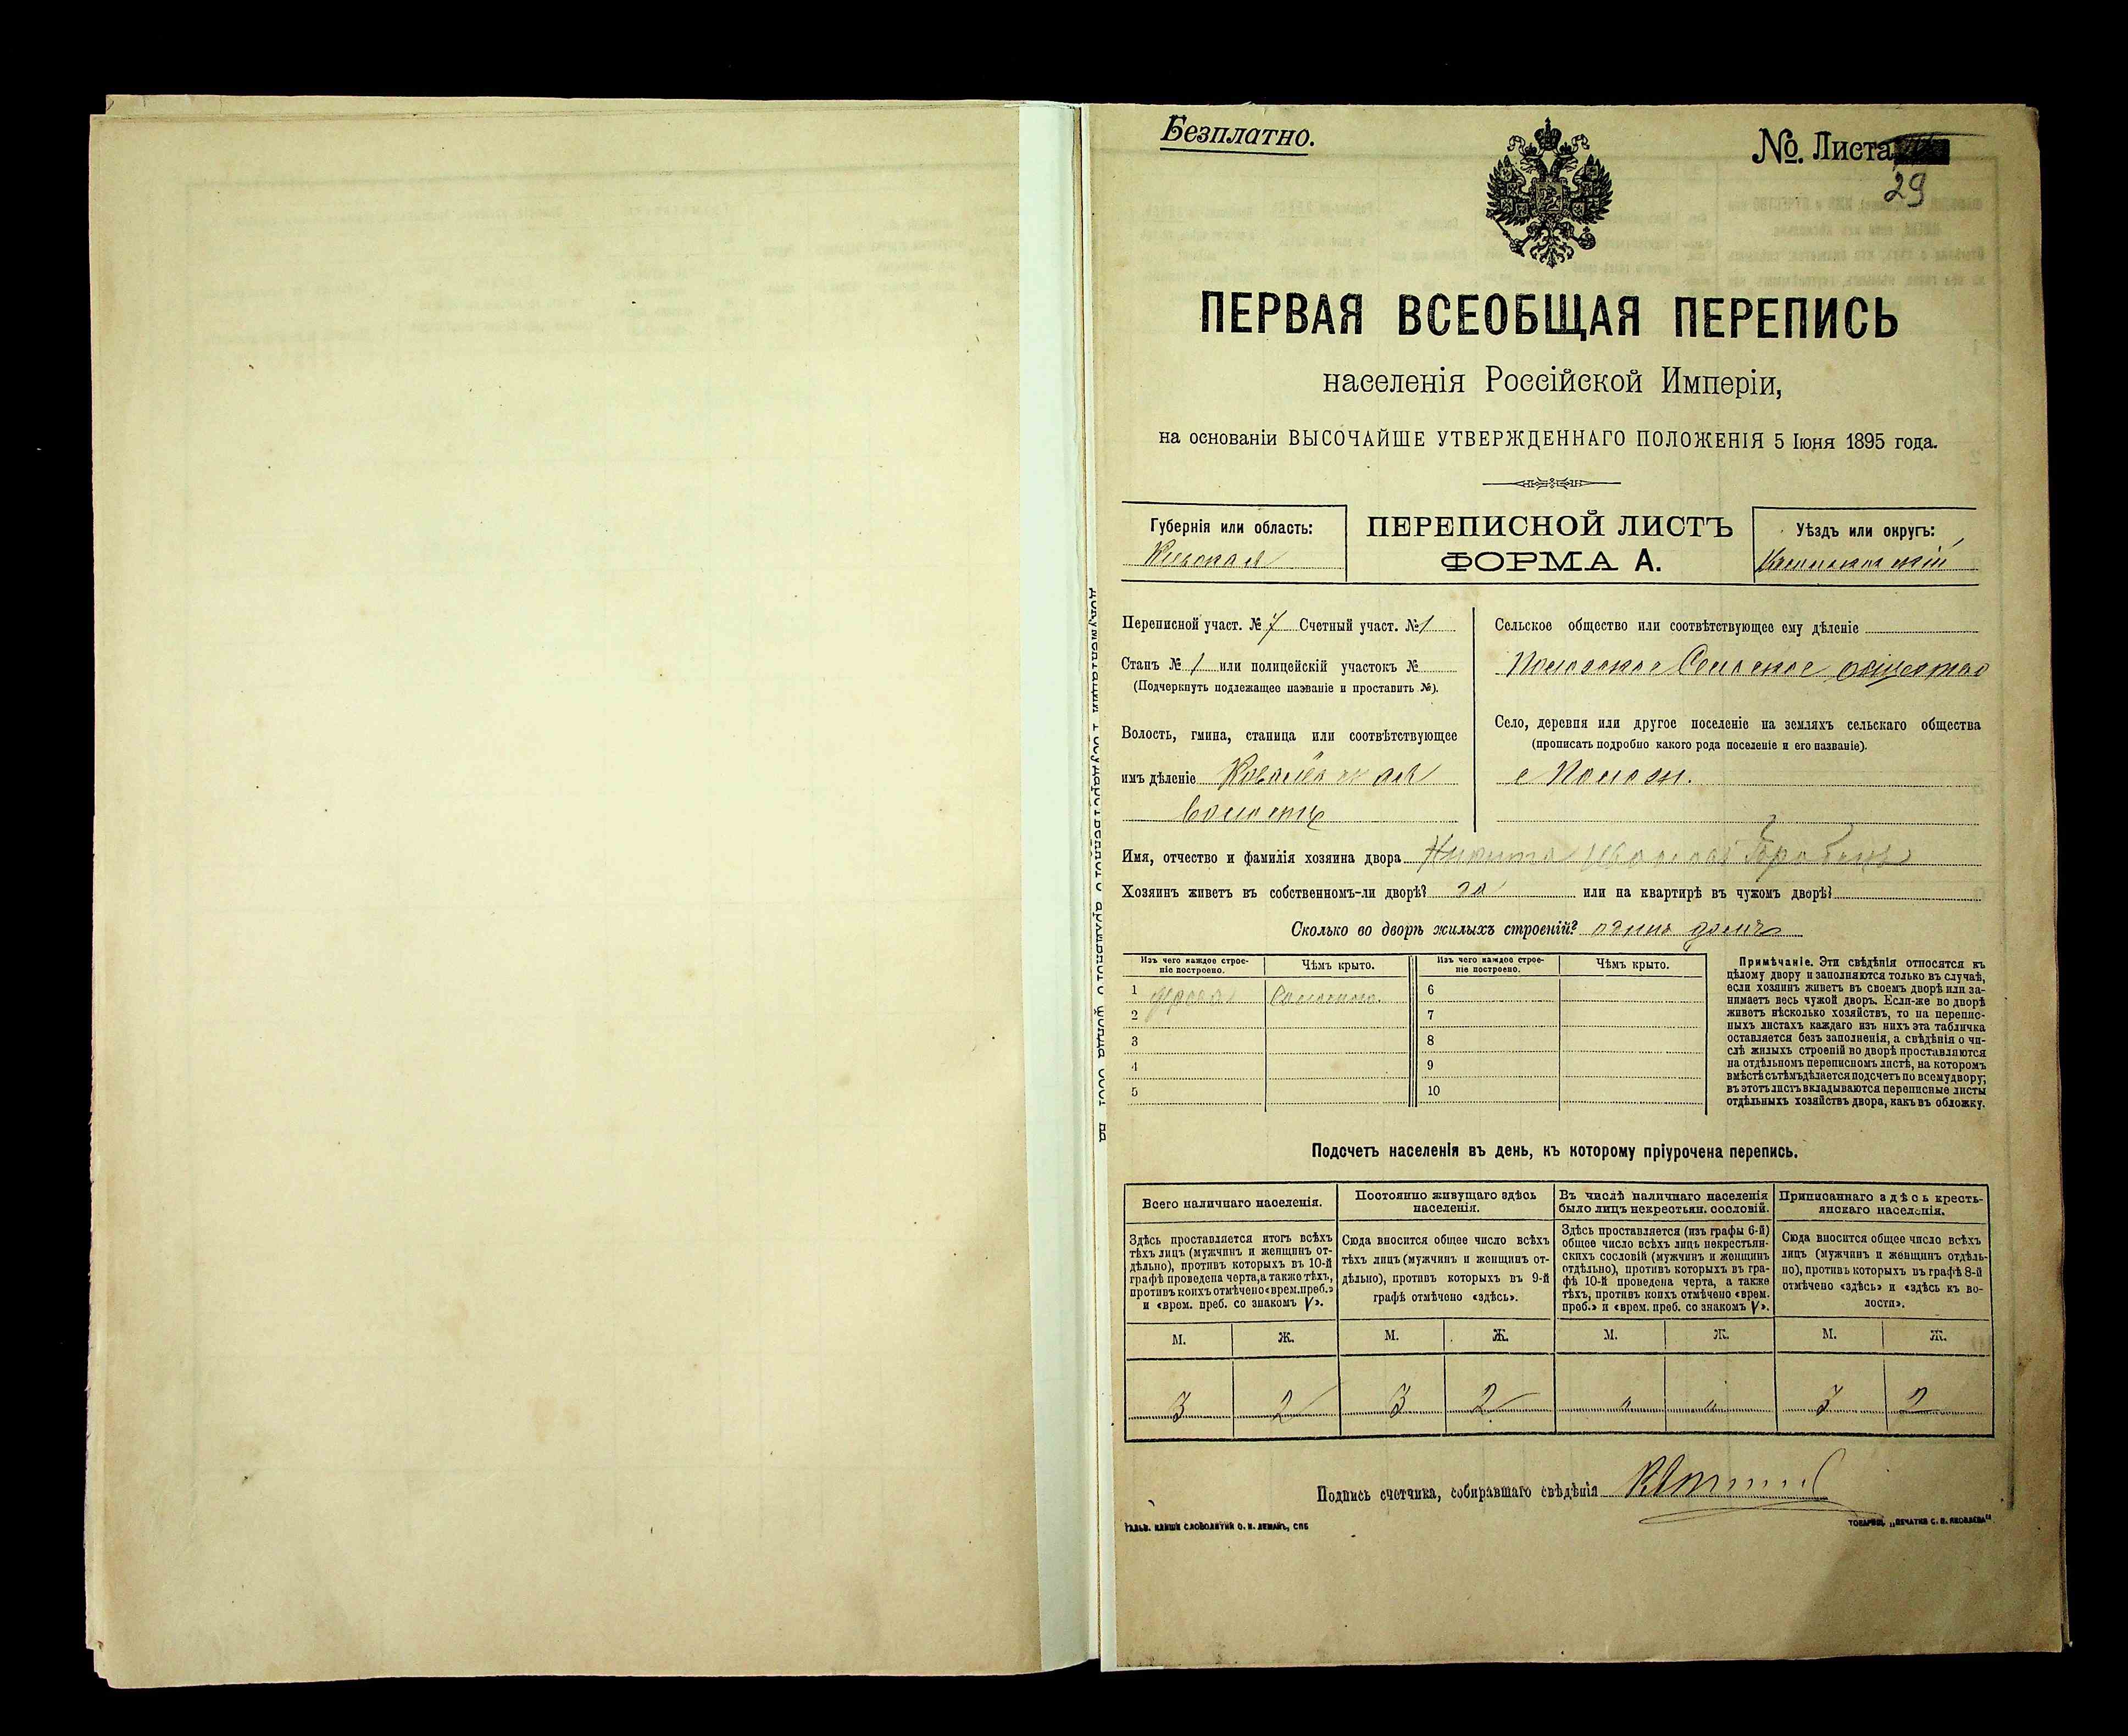 Безплатно.
№. Листа
29
ПЕРВАЯ ВСЕОБЩАЯ ПЕРЕПИСЬ
населенія Россійской Имперіи,
на основаніи ВЫСОЧАЙШЕ УТВЕРЖДЕННАГО ПОЛОЖЕНІЯ 5 Іюня 1895 года.
Губернія или область:
Кіевская
ПЕРЕПИСНОЙ ЛИСТЪ
ФОРМА А.
Уѣздъ или округъ:
Переписной участ. № 7 Счетный участ. № 1
Станъ № 1 или полицейскій участокъ №
(Подчеркнуть подлежащее названіе и проставить №).
Волость, гмина, станица или соотвѣтствующее
имъ дѣленіе
волость
Сельское общество или соотвѣтствующее ему дѣленіе
Сельское общество
Село, деревня или другое поселеніе на земляхъ сельскаго общества
(прописать подробно какого рода поселеніе и его названіе).
с
Имя, отчество и фамилія хозяина двора Никита Ивановъ
Хозяинъ живетъ въ собственномъ-ли дворѣ? да или на квартирѣ въ чужомъ дворѣ?
Сколько во дворѣ жилыхъ строеній? одинъ домъ
Изъ чего каждое строе-
ніе построено.
Чѣмъ крыто.
Изъ чего каждое строе-
ніе построено.
Чѣмъ крыто.
1 дерева Соломою 6
2 7
3 8
4 9
5 10
Примѣчаніе. Эти свѣдѣнія относятся къ
цѣлому двору и заполняются только въ случаѣ,
если хозяинъ живетъ въ своемъ дворѣ или за-
нимаетъ весь чужой дворъ. Если-же во дворѣ
живетъ нѣсколько хозяйствъ, то на перепис-
ныхъ листахъ каждаго изъ нихъ эта табличка
оставляется безъ заполненія, а свѣдѣнія о чи-
слѣ жилыхъ строеній во дворѣ проставляются
на отдѣльномъ переписномъ листѣ, на которомъ
вмѣстѣ съ тѣмъ дѣлается подсчетъ по всему двору;
въ этотъ листъ вкладываются переписные листы
отдѣльныхъ хозяйствъ двора, какъ въ обложку.
Подсчетъ населенія въ день, къ которому пріурочена перепись.
Всего наличнаго населенія.
Здѣсь проставляется итогъ всѣхъ
тѣхъ лицъ (мужчинъ и женщинъ от-
дѣльно), противъ которыхъ въ 10-й
графѣ проведена черта, а также тѣхъ,
противъ коихъ отмѣчено «врем. преб.»
и «врем. преб. со знакомъ V».
Постоянно живущаго здѣсь
населенія.
Сюда вносится общее число всѣхъ
тѣхъ лицъ (мужчинъ и женщинъ от-
дѣльно), противъ которыхъ въ 9-й
графѣ отмѣчено «здѣсь».
Въ числѣ наличнаго населенія
было лицъ некрестьян. сословій.
Здѣсь проставляется (изъ графы 6-й)
общее число всѣхъ лицъ некрестьян-
скихъ сословій (мужчинъ и женщинъ
отдѣльно), противъ которыхъ въ гра-
фѣ 10-й проведена черта, а также
тѣхъ, противъ коихъ отмѣчено «врем.
преб.» и «врем. преб. со знакомъ V».
Приписаннаго здѣсь кресть-
янскаго населенія.
Сюда вносится общее число всѣхъ
лицъ (мужчинъ и женщинъ отдѣль-
но), противъ которыхъ въ графѣ 8-й
отмѣчено «здѣсь» и «здѣсь къ во-
лости».
М. Ж. М. Ж. М. Ж. М. Ж.
3 2 3 2 " " 3 2
Подпись счетчика, собиравшаго свѣдѣнія
ТОВАРИЩ. „ПЕЧАТНЯ С. П. ЯКОВЛЕВА"